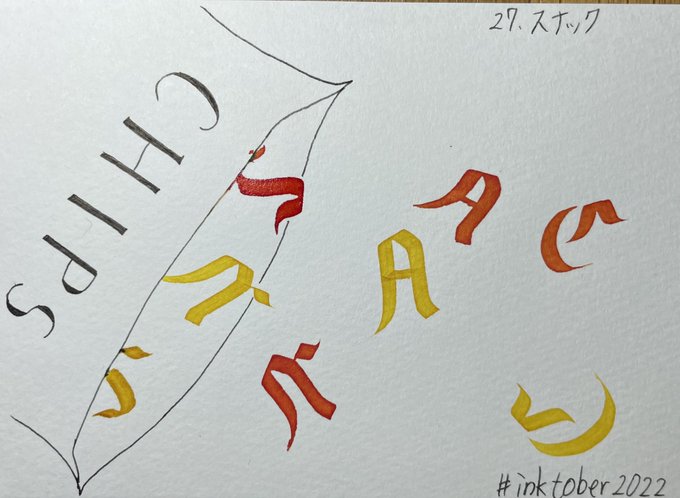 27.スナック
CHIPS
S
N
S
N
A
A
C
C
#inktober2022